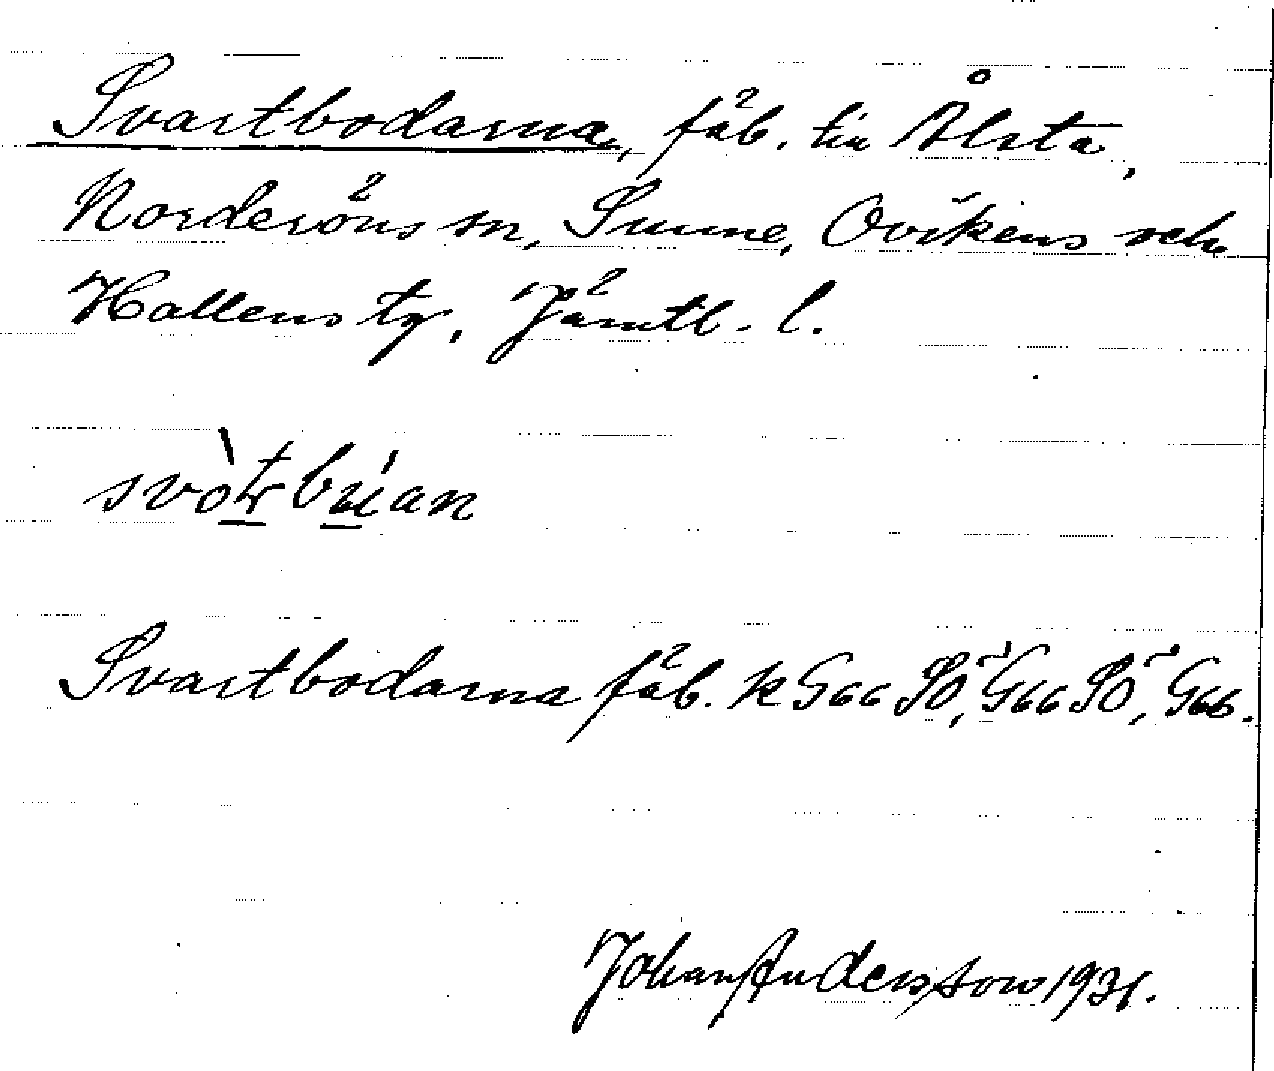 Svartbodarna, fäb. till Ålsta,
Norderöns sn, Sunne, Ovikens och
Hallens tg, Jämtl. l.
svòtrbúan
Svartbodarna fäb. k G66 SÖ, G66 SÖ, G66.
Johan Andersson 1931.